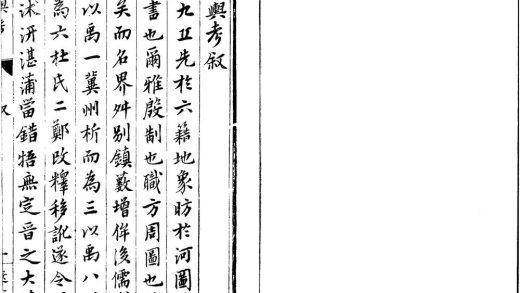 輿考叙
九丘先於六籍地象昉於河圖
書也爾雅殷制也職方周圖也
矣而名界舛别鎮藪增侔後儒
以禹一冀州析而為三以禹八
為六杜氏二鄭改釋移訛遂令
沭汧湛蒲當錯牾無定晉之大
叙